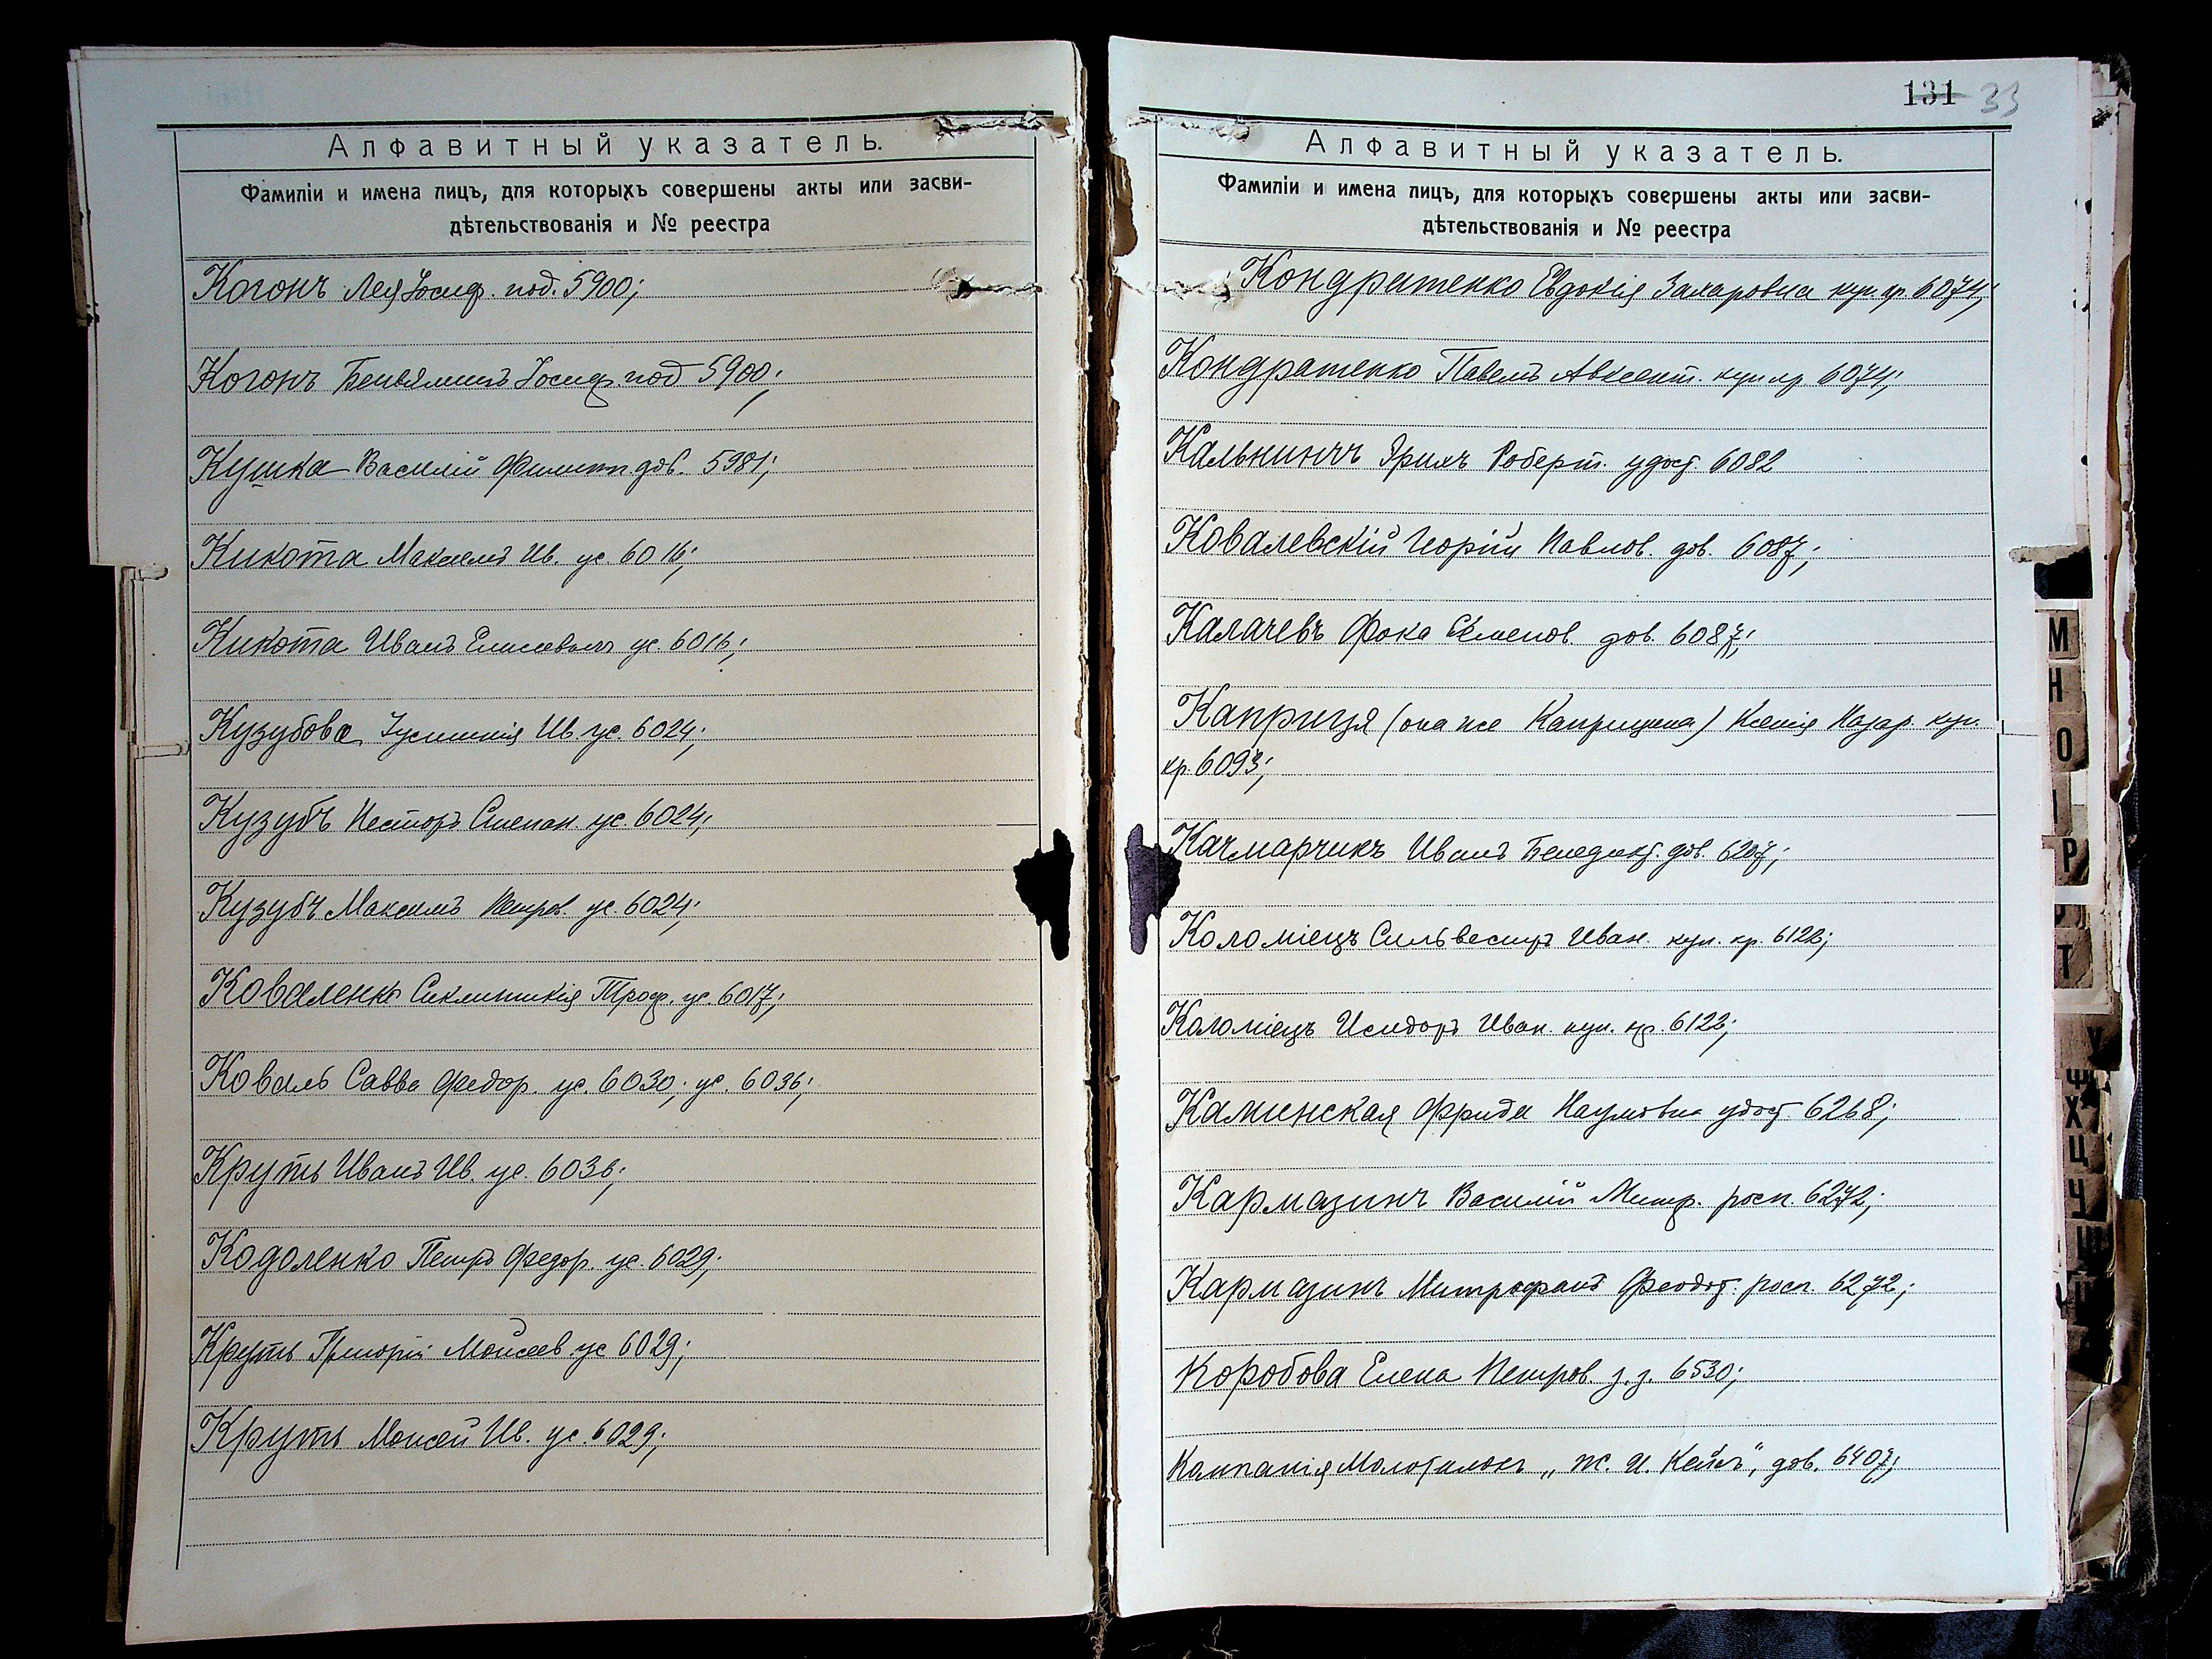 Алфавитный указатель.
Фамиліи и имена лицъ, для которыхъ совершены акты или засви-
дѣтельствованія и № реестра
Когонъ Лея Іосиф. под. 5900;
Когонъ Беньяминъ Іосиф. под 5900;
Кушка Василій Филипп. дов. 5981;
Кикота Максимъ Ив. ус. 6016;
Кикота Иванъ Елисеевичъ ус. 6016;
Кузубова Іустинія Ив. ус. 6024;
Кузубъ Несторъ Степан. ус. 6024;
Кузубъ Максимъ Петров. ус. 6024;
Коваленко Синклитикія Троф. ус. 6017;
Коваль Савва Федор. ус. 6030; ус. 6036;
Круть Иванъ Ив. ус. 6036;
Кодоленко Петръ Федор. ус. 6029;
Круть Григорій Моисеев ус 6029;
Круть Моисей Ив. ус. 6029;
131 33
Алфавитный указатель.
Фамиліи и имена лицъ, для которыхъ совершены акты или засви-
дѣтельствованія и № реестра
Кондратенко Евдокія Захаровна куп. кр. 6074;
Кондратенко Павелъ Авксент. куп кр. 6074;
Кальнинъ Эрихъ Роберт. удост. 6082
Ковалевскій Георгій Павлов. дов. 6087;
Калачевъ Фока Семенов. дов. 6087;
Каприця (она же Каприцина) Ксенія Назар. куп.
кр. 6093;
Качмарчикъ Иванъ Бенедикт. дов. 6207;
Коломіецъ Сильвестръ Иван. куп. кр. 6122;
Коломіецъ Исидоръ Иван. куп. кр. 6122;
Каминская Фрида Наумовна удост. 6268;
Кармазинъ Василій Митр. росп. 6272;
Кармазинъ Митрофанъ Феодот. росп. 6272;
Коробова Елена Петров. з. з. 6530;
Компанія Молотилокъ „Ж. И. Кейсъ", дов. 6407;
М
Н
О
Р
Т
У
Ф
Х
Ц
Ч
Ш